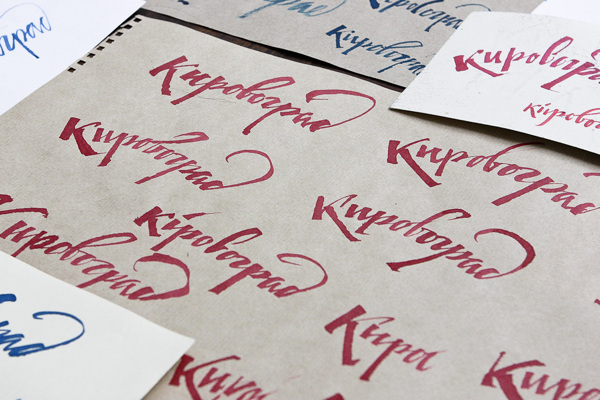 Кировоград
Кіровоград
Кировогра
Кіровогра
Кировоград
Кировоград
Кировоград
Кировоград
Кіровоград
Кировоград
рад
Киро
Киро
Киро